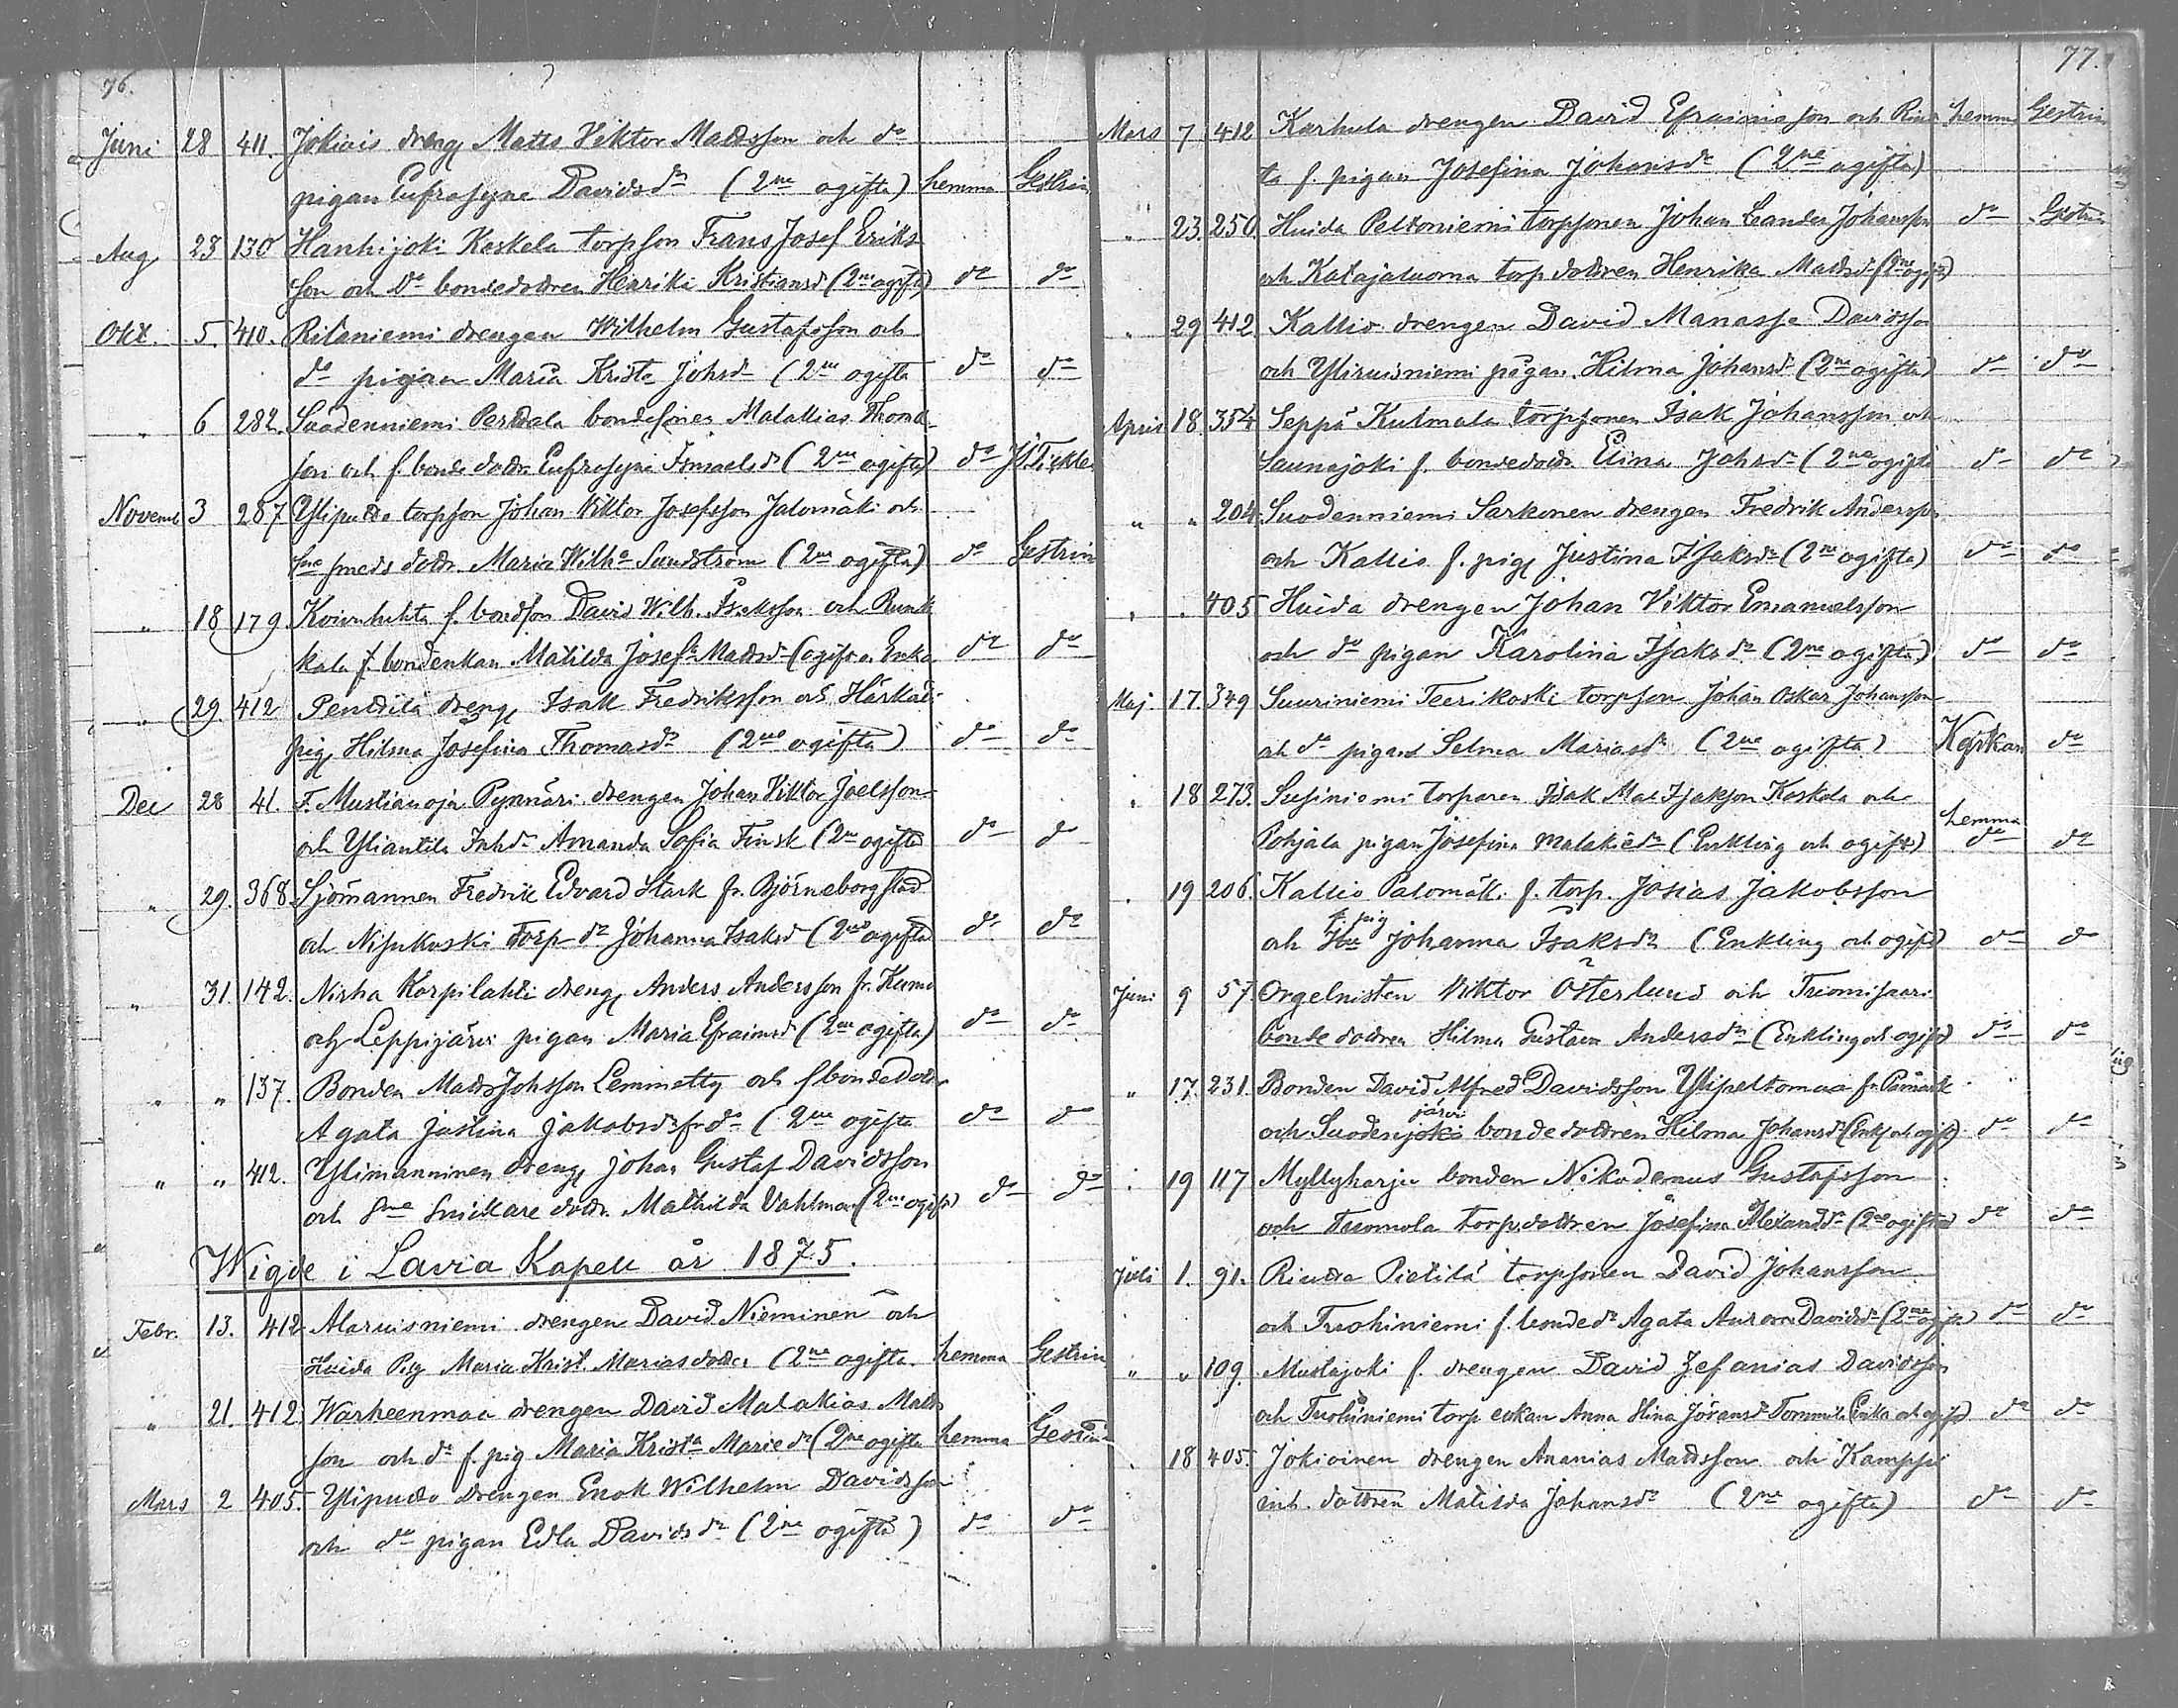 76.
Juni 28 411. Jokiois dreng Matts Viktor Mattsson och do
pigan Eufrosyne Davidsdr (2ne ogifta) hemma Gestrin
Aug 23 130 Hanhijoki Koskela torpson Frans Josef Eriks
son och do bondedottren Henrika Kristiansd (2ne ogifta) do do
Okt. 5. 410. Ritaniemi drengen Wilhelm Gustafsson och
do pigan Maria Krista Johsdr (2ne ogifta do do
" 6 282. Suodenniemi Perttala bondesonen Malakias Thomas
son och f. bonde dottr Eufrosyne Ismaelsdr (2ne ogifta) do
Novemb 3 287 Ylipuddo torpson Johan Viktor Josefsson Jalomäki och
smeds dottr. Maria Wilha Sundström (2ne ogifta) do Gestrin
" 18 179. Koivuhuhta f. bondson David Wilh. Isaksson och Runk
kala f. bondenkan Matilda Josefa Mattsdr (ogift o. Enka do do
" 29. 412 Penttilä dreng Isak Fredriksson och Härkälä
pig Hilma Josefina Thomasdr (2ne ogifta) do do
Dec 28 41. F. Mustianoja Pynnäri drengen Johan Viktor Joelsson
och Yliantila Inhdr Amanda Sofia Finsk (2ne ogifta do do
" 29. 368. Sjömannen Fredrik Edvard Stark fr. Björneborg stad
och Nisukuski Torp dr Johanna Isaksd (2ne ogifta do do
" 31. 142. Nisha Korpilahti dreng Anders Andersson fr. Kumo
och Leppijärvi pigan Maria Efraimsd (2ne ogifta) do do
" " 137. Bonden Matts Johsson Lemmetty och f bonde Dottr
Agata Justina Jakobsdr fr do (2ne ogifta do do
" " 412. Ylimanninen dreng Johan Gustaf Davidsson
och Snickare dottr. Mathilda Vahlman (2ne ogift) do do
Wigde i Lavia Kapell år 1875.
Febr. 13. 412 Alaruisniemi drengen David Nieminen och
Huida Pig Maria Krist. Mariasdotter (2ne ogifta. hemma Gestrin
" 21. 412. Warheenmaa drengen David Malakias Matts
son och do f. pig Maria Krista Marie dr (2ne ogifta hemma Gestrin
Mars 2 405. Ylipuddo drengen Enok Wilhelm Davidsson
och do pigan Edla Davids dr (2ne ogifta) do do
77.
Mars 7 412 Karhula drengen David Efraimsson och Rin hemma Gestrin
ta f. pigan Josefina Johansdr (2ne ogifta)
" 23. 250. Huida Peltoniemi torpsonen Johan Leander Johansson do Gestrin
och Katajaluoma torp dottren Henrika Mattsd (2ne ogifta)
" 29 412. Kallio drengen David Manasse Davidsson
och Yliruisniemi pigan Hilma Johansd (2ne ogifta) do do
April 18. 354 Seppä Kulmala torpsonen Isak Johansson och
Saunajoki f. bondedottr Elina Johsdr (2ne ogifta do do
" " 204 Suodenniemi Sarkonen drengen Fredrik Andersson
och Kallio f. pig Justina Isaksdr (2ne ogifta) do do
" " 405 Huida drengen Johan Viktor Emanuelsson
och do pigan Karolina Isaksdr (2ne ogifta) do do
Maj. 17. 349 Suuriniemi Teerikoski torpson Johan Oskar Johansson
och do pigan Selma Mariasdr (2ne ogifta) Kyrkan do
" 18 273. Susiniemi torparen Isak Mat Isaksson Koskela och
hemma
Pohjala pigan Josefina Malakiedr (Enkling och ogift) do do
" 19 206. Kallio Palomäki f. torp. Josias Jakobsson
f. pig
och Johanna Isaksdr (Enkling och ogift) do do
Juni 9 57 Orgelnisten Viktor Österlund och Tuomisaari
bonde dottren Hilma Gustava Andersdr (Enkling och ogift) do do
" 17. 231. Bonden David Alfred Davidsson Ylipeltomaa fr. Påmark
järvi
och Suodenjoki bonde dottren Hilma Johansd (Enkl och ogift) do do
" 19 117 Myllyharju bonden Nikodemus Gustafsson
och Tuomola torp. dottren Josefina Alexandr (2ne ogifta) do do
Juli 1. 91. Rindra Pietilä torpsonen David Johansson
och Tuohiniemi f. bonde dr Agata Aurora Davidsdr (2ne ogifta) do do
" " 109. Mustajoki f. drengen David Zefanias Davidsson
och Tuohiniemi torp enkan Anna Stina Jöransdr Tommila (Enka och ogift) do do
18 405. Jokioinen drengen Ananias Mattsson och Kamppi
inh. dottren Matilda Johansdr (2ne ogifta) do do